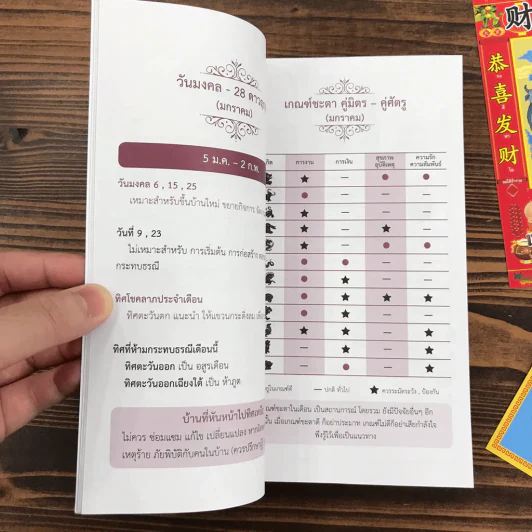 วันมงคล - 28 ดาว
(มกราคม)
5 ม.ค. – 2 ก.พ.
วันมงคล 6 , 15 , 25
เหมาะสำหรับขึ้นบ้านใหม่ ขยายกิจการ
วันที่ 9 , 23
ไม่เหมาะสำหรับ การเริ่มต้น การก่อสร้าง
กระทบธรณี
ทิศโชคลาภประจำเดือน
ทิศตะวันตก แนะนำ ให้แขวนกระดิ่งลม
ทิศที่ห้ามกระทบธรณีเดือนนี้
ทิศตะวันออก เป็น อสูรเดือน
ทิศตะวันออกเฉียงใต้ เป็น ห้าภูต
บ้านที่หันหน้าไปทิศ
ไม่ควร ซ่อมแซม แก้ไข เปลี่ยนแปลง
เหตุร้าย ภัยพิบัติกับคนในบ้าน
เกณฑ์ชะตา คู่มิตร – คู่ศัตรู
(มกราคม)
การงาน การเงิน สุขภาพ อุบัติเหตุ ความรัก ความสัมพันธ์
– ปกติ ทั่วไป ★ ควรระมัดระวัง , ป้องกัน
ชะตาในเดือน เป็นสถานการณ์ โดยรวม ยังมีปัจจัยอื่นๆ อีก
เมื่อเกณฑ์ชะตาดี ก็อย่าประมาท เกณฑ์ไม่ดีก็อย่าเสียกำลังใจ
พึงรู้ไว้เพื่อเป็นแนวทาง
财
恭
喜
发
财